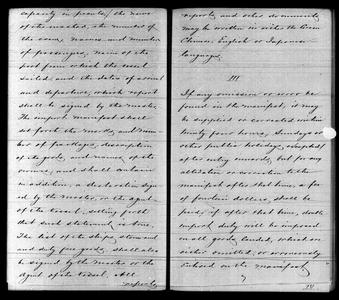 capacity in piculs, the name
of the consul, the number of
the crew, names and number
of passengers, name of the
port from which the vessel
sailed and the dates of arrival
and departure, which report
shall be signed by the master.
The import manifest shall
set forth the marks, and num-
ber of packages, description
of the goods, and names of the
owners, and shall contain
in addition, a declaration sign-
ed by the master, or the agent
of the vessel, setting forth
that such statement is true.
The list of the ships stores
and duty free goods, shall also
be signed by the master or the
agent of the vessel. All
reports
reports, and other documents
may be written in either the Corean
Chinese, English or Japanese
languages.
III
If any omission or error be
found in the manifest, it may
be supplied or corrected within
twenty four hours, Sundays or
other public holidays, excepted,
after entry inwards, but for any
alteration or correction to the
manifest after that time, a fee
of fourteen dollars, shall be
paid; if after that time, double
import duty will be imposed
on all goods landed, which are
either omitted, or erroneously
entered on the manifest.